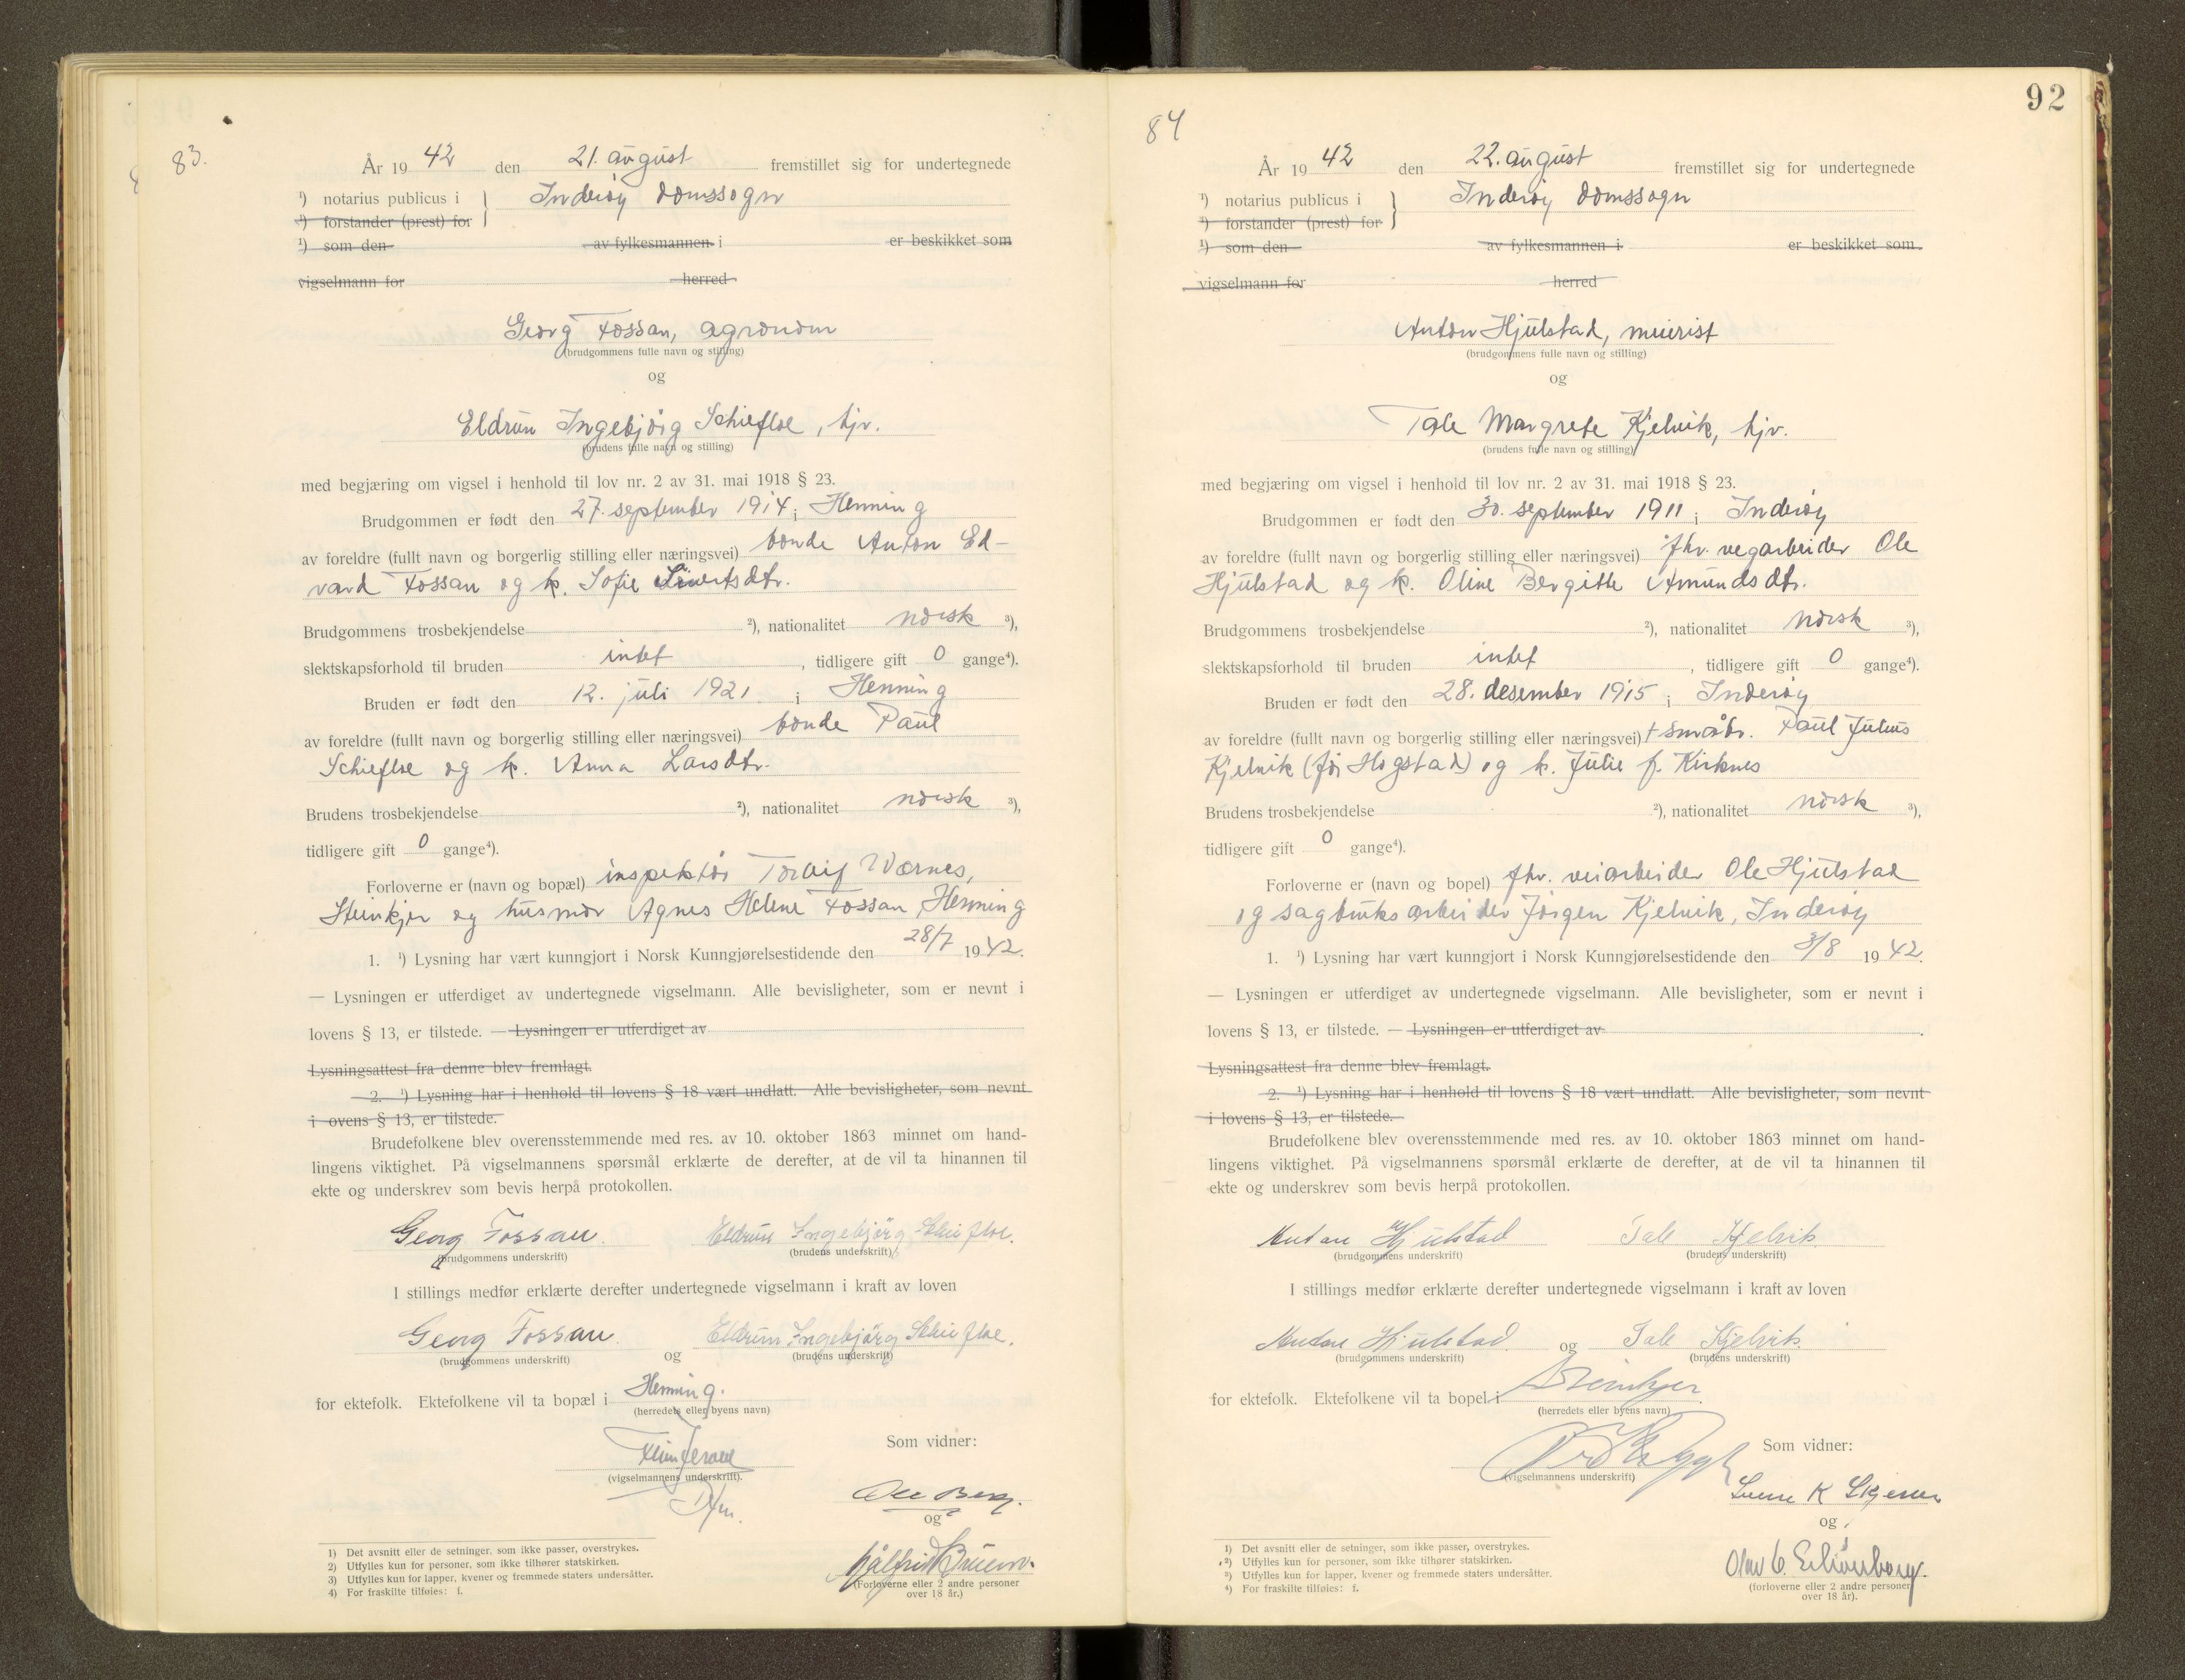 83.
År 19 42 den 21. august fremstillet sig for undertegnede
¹) notarius publicus i Inderøy domssogn
¹) forstander (prest) for
¹) som den av fylkesmannen i er beskikket som
vigselmann for herred
Georg Fossan, agronom
(brudgommens fulle navn og stilling)
og
Eldrun Ingebjørg Schiefloe, hjv.
(brudens fulle navn og stilling)
med begjæring om vigsel i henhold til lov nr. 2 av 31. mai 1918 § 23.
Brudgommen er født den 27. september 1914 i Henning
av foreldre (fullt navn og borgerlig stilling eller næringsvei) bonde Anton Ed-
vard Fossan og k. Sofie Sivertsdtr.
Brudgommens trosbekjendelse ²), nationalitet norsk ³),
slektskapsforhold til bruden intet, tidligere gift 0 gange⁴).
Bruden er født den 12. juli 1921 i Henning
av foreldre (fullt navn og borgerlig stilling eller næringsvei) bonde Paul
Schiefloe og k. Anna Larsdtr.
Brudens trosbekjendelse ²), nationalitet norsk ³),
tidligere gift 0 gange⁴).
Forloverne er (navn og bopæl) inspektør Toralf Wærnes,
Steinkjer og husmor Agnes Helene Fossan, Henning
1. ¹) Lysning har vært kunngjort i Norsk Kunngjørelsestidende den 28/7 1942.
— Lysningen er utferdiget av undertegnede vigselmann. Alle bevisligheter, som er nevnt i
lovens § 13, er tilstede. — Lysningen er utferdiget av
Lysningsattest fra denne blev fremlagt.
2. ¹) Lysning har i henhold til lovens § 18 vært undlatt. Alle bevisligheter, som nevnt
i ovens § 13, er tilstede.
Brudefolkene blev overensstemmende med res. av 10. oktober 1863 minnet om hand-
lingens viktighet. På vigselmannens spørsmål erklærte de derefter, at de vil ta hinannen til
ekte og underskrev som bevis herpå protokollen.
Georg Fossan. Eldrun Ingebjörg Schiefloe.
(brudgommens underskrift) (brudens underskrift)
I stillings medfør erklærte derefter undertegnede vigselmann i kraft av loven
Georg Fossan. og Eldrun Ingebjörg Schiefloe.
(brudgommens underskrift) (brudens underskrift)
for ektefolk. Ektefolkene vil ta bopæl i Henning.
(herredets eller byens navn)
Som vidner:
(vigselmannens underskrift).
Ole Berg.
og
(Forloverne eller 2 andre personer
over 18 år.)
1) Det avsnitt eller de setninger, som ikke passer, overstrykes.
2) Utfylles kun for personer, som ikke tilhører statskirken.
3) Utfylles kun for lapper, kvener og fremmede staters undersåtter.
4) For fraskilte tilføies: f.
92
84
År 19 42 den 22. august fremstillet sig for undertegnede
¹) notarius publicus i Inderøy domssogn
¹) forstander (prest) for
¹) som den av fylkesmannen i er beskikket som
vigselmann for herred
Anton Hjulstad, meierist
(brudgommens fulle navn og stilling)
og
Tale Margrete Kjelvik, hjv.
(brudens fulle navn og stilling)
med begjæring om vigsel i henhold til lov nr. 2 av 31. mai 1918 § 23.
Brudgommen er født den 30. september 1911 i Inderøy
av foreldre (fullt navn og borgerlig stilling eller næringsvei) fhv. vegarbeider Ole
Hjulstad og k. Oline Bergitte Amundsdtr.
Brudgommens trosbekjendelse ²), nationalitet norsk ³),
slektskapsforhold til bruden intet, tidligere gift 0 gange⁴).
Bruden er født den 28. desember 1915 i Inderøy
av foreldre (fullt navn og borgerlig stilling eller næringsvei) + småbr. Paul Julius
Kjelvik (før Hogstad) og k. Julie f. Kirknes
Brudens trosbekjendelse ²), nationalitet norsk ³),
tidligere gift 0 gange⁴).
Forloverne er (navn og bopel) fhv. veiarbeider Ole Hjulstad
og sagbruksarbeider Jørgen Kjelvik, Inderøy
1. ¹) Lysning har vært kunngjort i Norsk Kunngjørelsestidende den 3/8 1942.
— Lysningen er utferdiget av undertegnede vigselmann. Alle bevisligheter, som er nevnt i
lovens § 13, er tilstede. — Lysningen er utferdiget av .
Lysningsattest fra denne blev fremlagt.
2. ¹) Lysning har i henhold til lovens § 18 vært undlatt. Alle bevisligheter, som nevnt
i lovens § 13, er tilstede.
Brudefolkene blev overensstemmende med res. av 10. oktober 1863 minnet om hand-
lingens viktighet. På vigselmannens spørsmål erklærte de derefter, at de vil ta hinannen til
ekte og underskrev som bevis herpå protokollen.
Anton Hjulstad Tale Kjelvik.
(brudgommens underskrift) (brudens underskrift)
I stillings medfør erklærte derefter undertegnede vigselmann i kraft av loven
Anton Hjulstad. og Tale Kjelvik.
(brudgommens underskrift) (brudens underskrift)
for ektefolk. Ektefolkene vil ta bopel i Steinkjer
(herredets eller byens navn)
Som vidner:
(vigselmannens underskrift)
K
og
(forloverne eller 2 andre personer
over 18 år).
¹) Det avsnitt eller de setninger, som ikke passer, overstrykes.
²) Utfylles kun for personer, som ikke tilhører statskirken.
³) Utfylles kun for lapper, kvener og fremmede staters undersåtter.
⁴) For fraskilte tilføies: f.